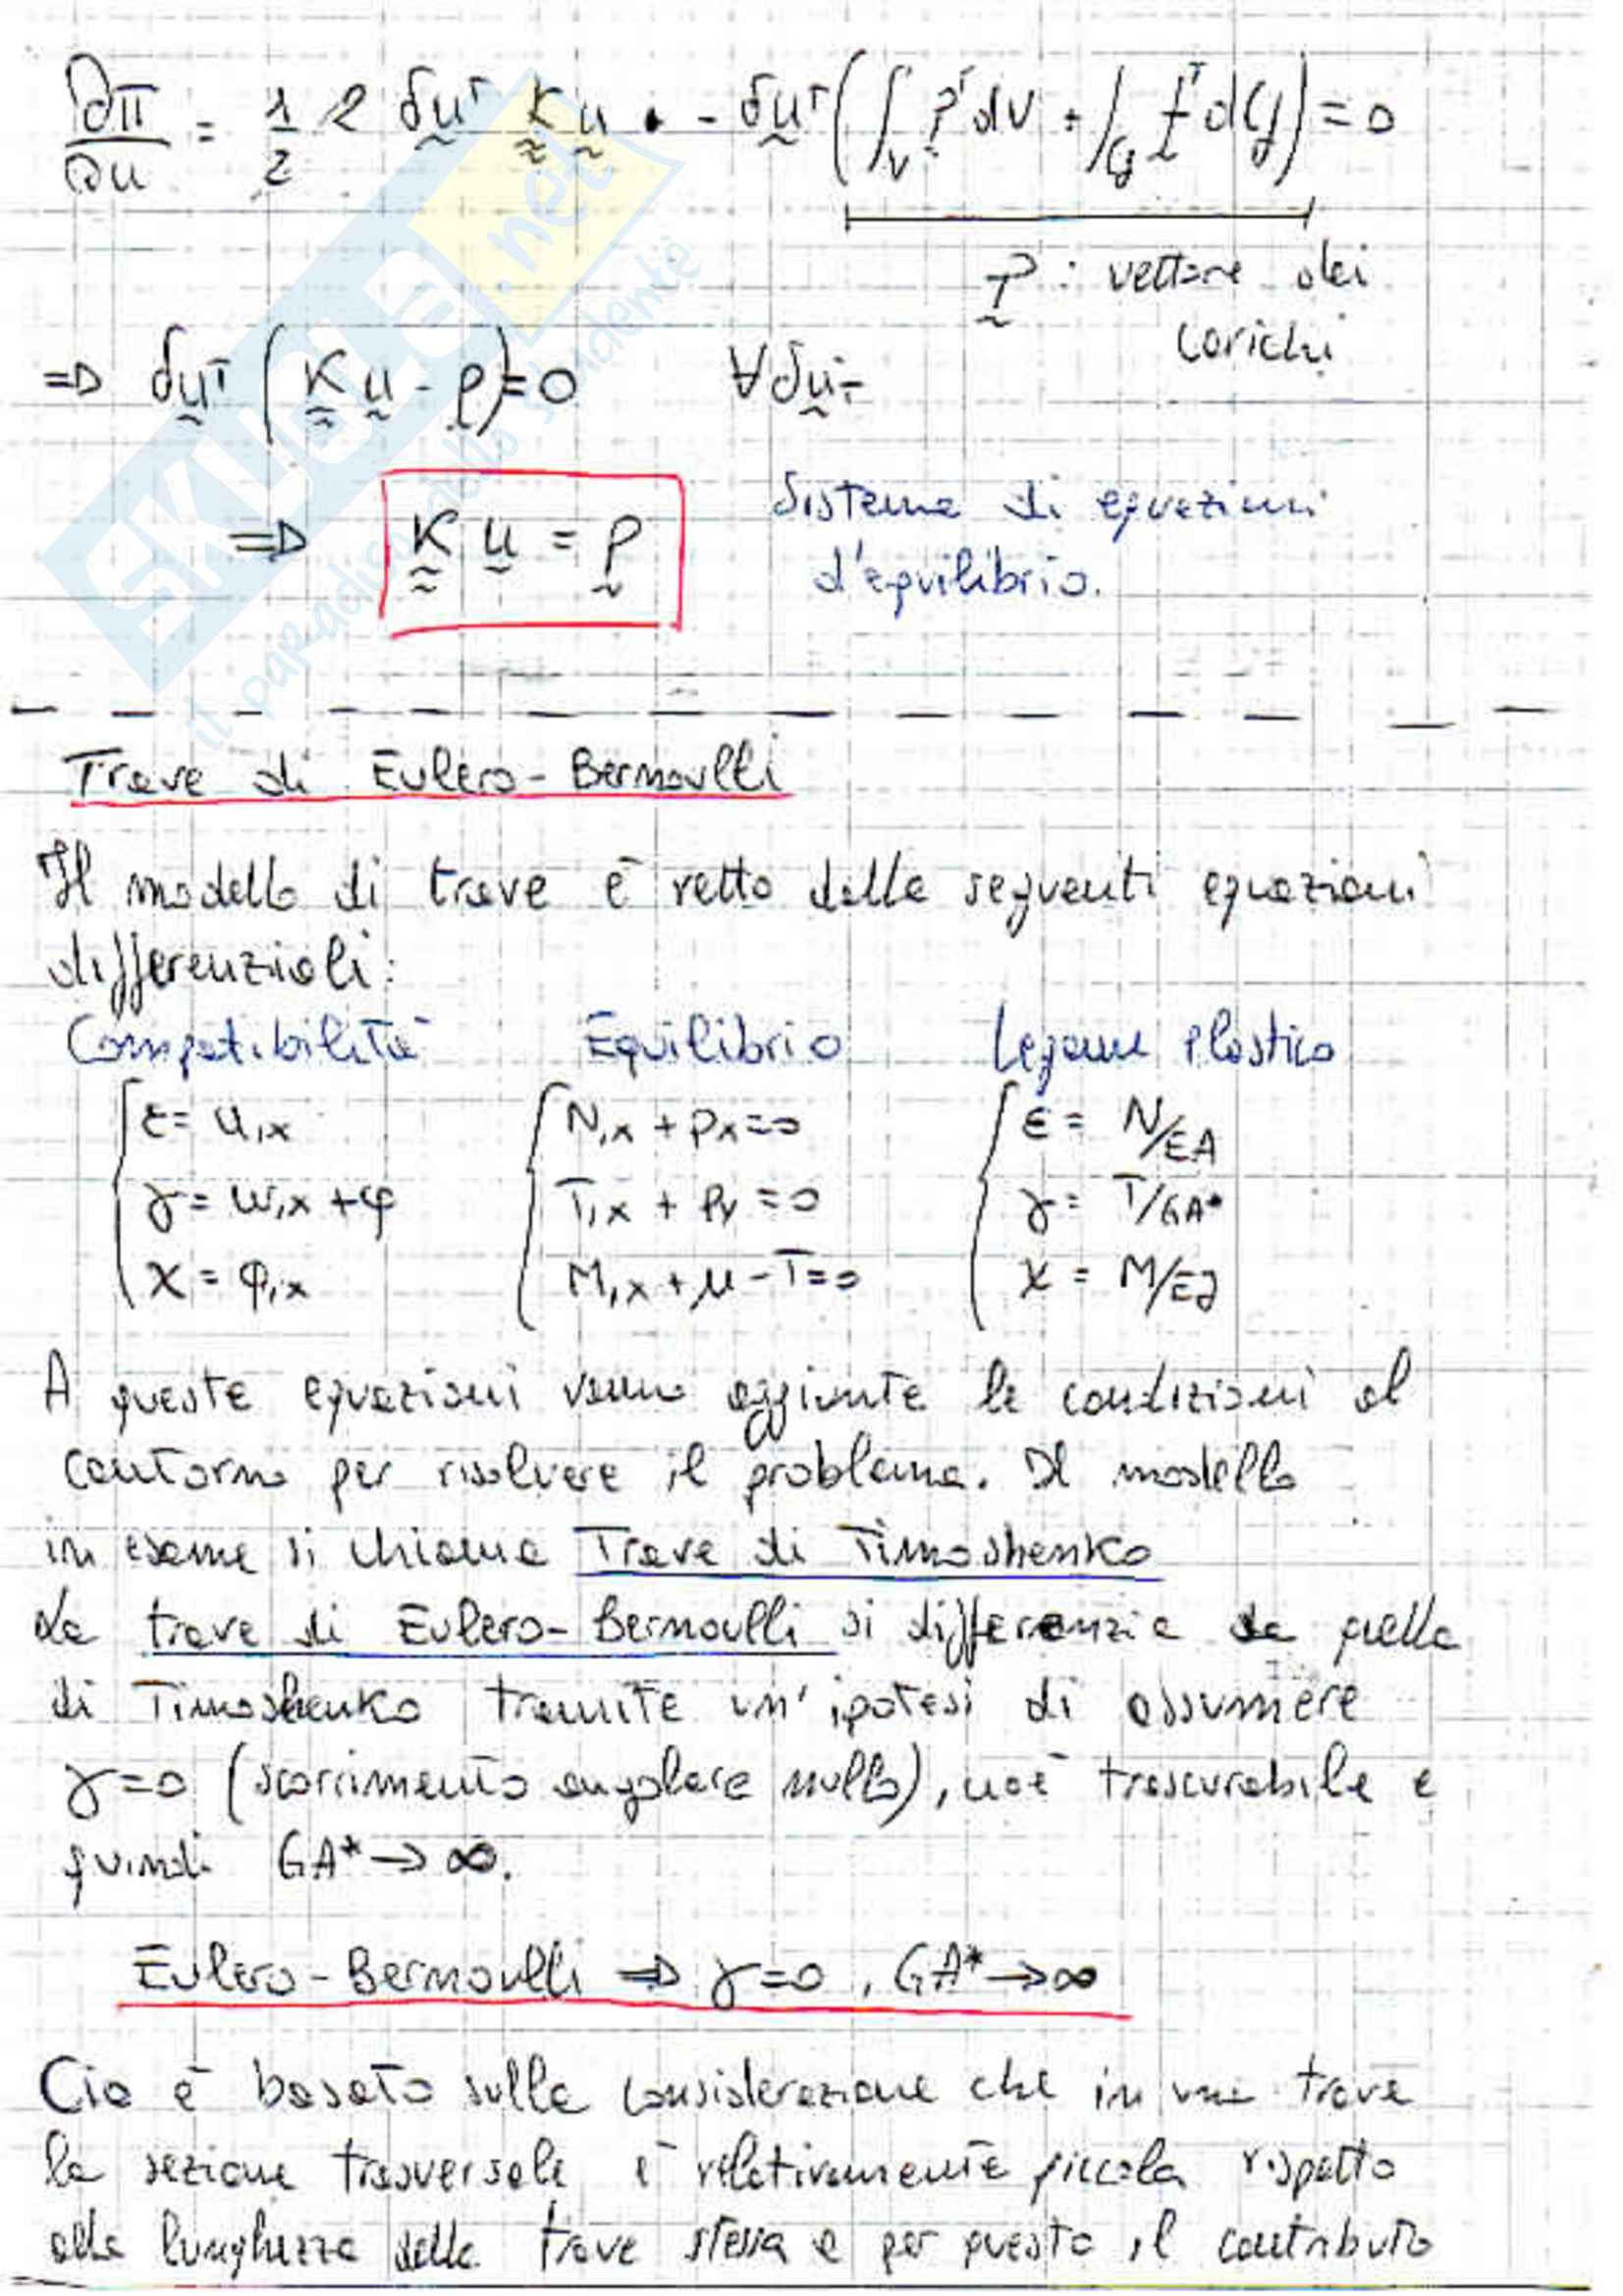 ∂π/∂u = 1/2 2 δuᵀ K u · - δuᵀ (∫_V Pᵀ dV + ∫_Cf fᵀ d Cf) = 0
P : vettore dei
carichi
=> δuᵀ (K u - p) = 0 ∀ δuᵀ
=> K u = p Sistema di equazioni
d'equilibrio.
Trave di Eulero-Bernoulli
Il modello di trave è retto dalle seguenti equazioni
differenziali:
Compatibilità Equilibrio Legame elastico
ε = u,x N,x + px = 0 ε = N/EA
γ = w,x + φ T,x + py = 0 γ = T/GA*
χ = φ,x M,x + μ - T = 0 χ = M/EJ
A queste equazioni vanno aggiunte le condizioni al
contorno per risolvere il problema. Il modello
in esame si chiama Trave di Timoshenko
La trave di Eulero-Bernoulli si differenzia da quella
di Timoshenko tramite un'ipotesi di assumere
γ=0 (scorrimento angolare nullo), cioè trascurabile e
quindi GA* → ∞.
Eulero-Bernoulli => γ=0 , GA* → ∞
Cio è basato sulla considerazione che in una trave
la sezione trasversale è relativamente piccola rispetto
alla lunghezza della trave stessa e per questo il contributo
SKUOLA.net
il paradiso dello studente